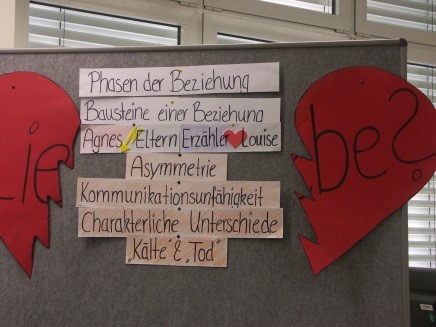 Phasen der Beziehung
Bausteine einer Beziehung
Agnes Eltern Erzähler Louise
Asymmetrie
Kommunikationsunfähigkeit
Charakterliche Unterschiede
„Kälte" & „Tod"
Lie
be?